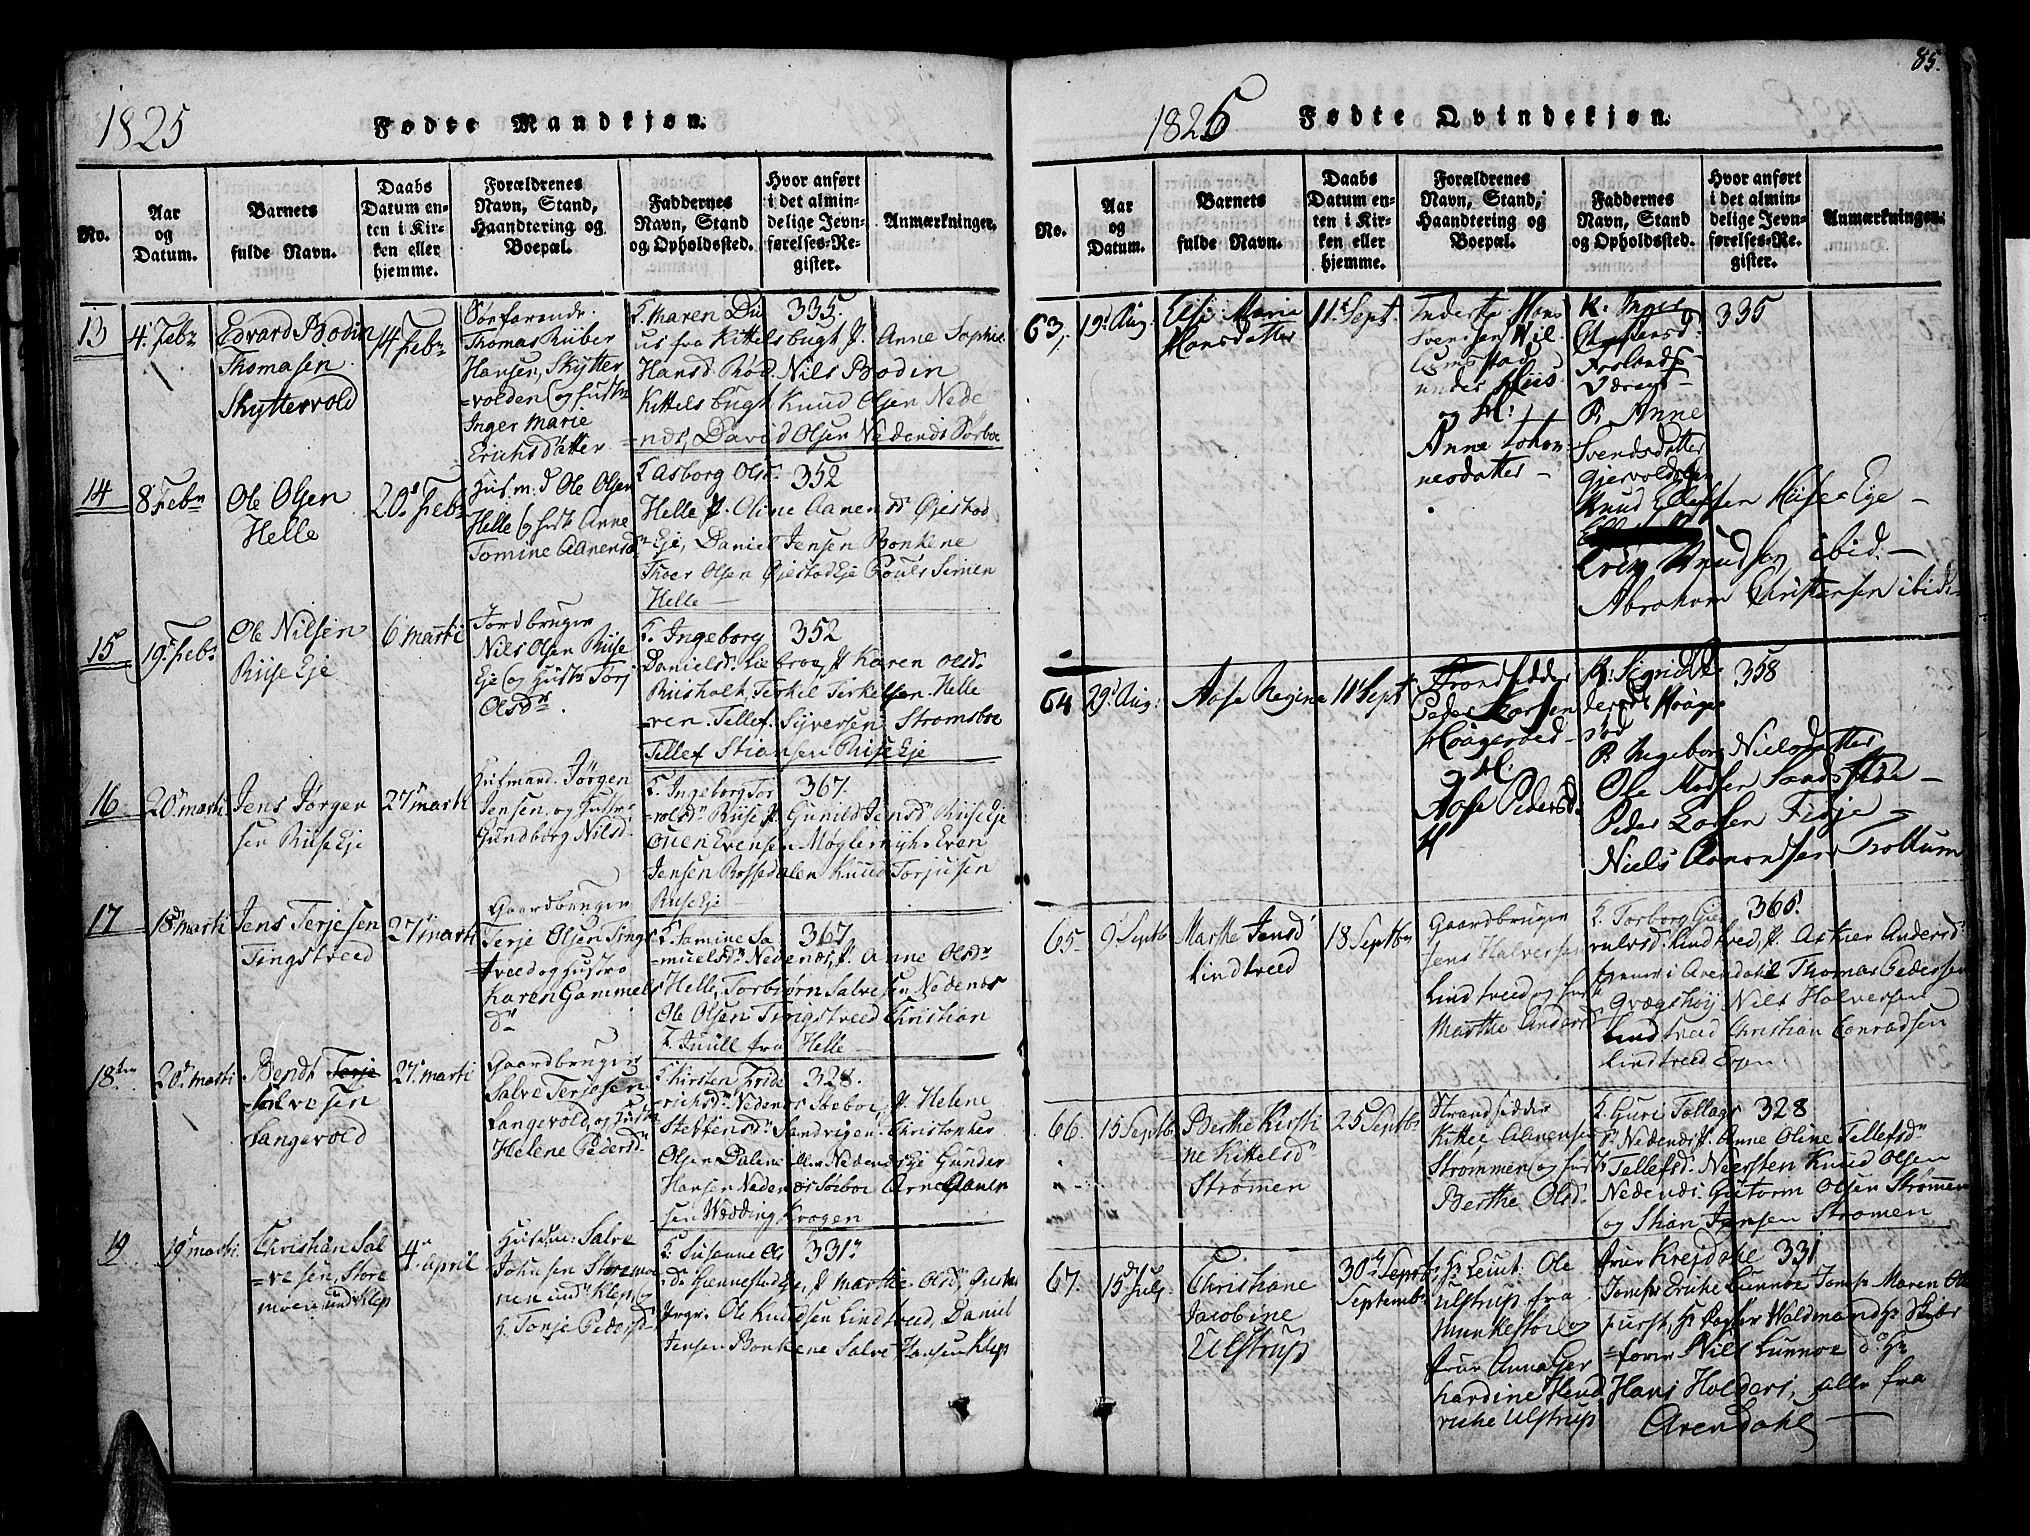 1825
Fødte Mandkjøn.
No.
Aar og Datum.
Barnets fulde Navn.
Daabs Datum enten i Kirken eller hjemme.
Forældrenes Navn, Stand, Haandtering og Boepæl.
Faddernes Navn, Stand og Opholdssted.
Hvor anført i det almindelige Jevnførelses-Register.
Anmærkninger.
13
4. Febr
Edvard Bodin
Thomasen
Skyttervold
14 Febr
Søefarende
Thomas Riiber
Hansen, Skytter
=volden og hustr
Inger Marie
Erichsdatter
F. Maren
us fra Kittelsbugt J. Anne Sophie
Hansd. Røed Nils Bodin
Kittelsbugt Knud Olsen Nede
=nds, David Olsen Nedends Sørboe
335.
14
8 Febr
Ole Olsen
Helle
20 Febr
Husmd Ole Olsen
Helle og hustr Anne
Tomine Aanensd
F. Asborg Olsd
Helle J. Oline Aanensd Øjestad
Eje, Daniel Jensen Bonkene
Thoer Olsen Øjestad Eje Pouls Simen
Helle
352
15
19. Febr
Ole Nilsen
Riise Eje
6 marti
Jordbruger
Nils Olsen Riise
Eje og hustr Torj
Olsdr
F. Ingeborg
Danielsd. Liebroe J. Karen Olsd.
Riisholt Terkil Terkelsen Helle
=ven. Tellef Syversen Stromsboe
Tellef Stiansen Riise Eje
352
16
20 marti
Jens Jørgen
sen Riise Eje
27 marti
Husmand Jørgen
Jensen, og Hustr
Gundborg Nilsd
F. Ingeborg Tor
=volsdr Riise J. Gunild Jensdr Riise Eje
Ouen Evensen Møglemyhr Even
Jensen Bossedalen Knud Torjusen
Riise Eje
367.
17
18 marti
Jens Terjesen
Tingstveed
27 marti
Gaardbruger
Terje Olsen Tings
=tveed og hustro
Karen Gammels
dr
F. Samine Sa
=muelsdr Nedenes, J. Anne Olsdr
Helle, Torbjørn Salvesen Nedenes
Ole Olsen Tingstveed Christian
F. Juull fra Helle
367
18
20 marti
Bendt Terje
Salvesen
Langevold
27. marti
Gaardbruger
Salve Terjesen
Langevold, og hustr
Helene Pedersdr
F. Kirsten Fride
richsdr Nedenes Søeboe, J. Helene
Steffensdr Sandvigen. Christopher
Olsen Dalene Nedends Eje Gunder
Hansen Nedenes Søeboe Arne Aanen
sen Wædding Kragen
328.
19
19 marti
Christian Sal
=vesen, Store
moen und. Klep
4 April
Husmd. Salve
Johnsen Storemoe
nen und. Klep, og
h. Tonje Pedersd
F. Susanne Ols
dr Gjennestad Eje, J. Marthe Olsdr
Ole Knudsen Lindtveed, Daniel
Jensen Bonkene Salve Hansen Klep
331
85.
1825
Fødte Qvindekjøn.
No.
Aar og Datum.
Barnets fulde Navn.
Daabs Datum enten i Kirken eller hjemme.
Forældrenes Navn, Stand, Haandtering og Boepæl.
Faddernes Navn, Stand og Opholdssted.
Hvor anført i det almindelige Jevnførelses-Register.
Anmærkninger.
63
19 Aug.
Else Maria
Hansdatter
11 Sept.
Inderste Hans
Svendsen
under Hiis
og H:
Anne Johan
nesdatter
K. Inger
P. Anne
Svendsdatter
Gjervoldsøen
Knud Ellefsen Hiise Eje
Knudsen ibid.
Abraham Christensen ibid.
335
64
29 Aug:
Aase Regine
11 Sept
Strandsidder
Peder Larsen
Haagerød
og H.
Aase Pedersd.
K. Sigrid Pe
dersd. Haage
rød
P. Ingeborg Nielsdatter
Ole Madsen Sandstøe
Peder Larsen Fisje
Niels Amondsen Trollum
358
65
9 Septb
Marthe Jensd
Lindtveed
18 Septbr
Gaardbruger
Jens Halversen
Lindtveed og hust
Marthe Andersd
F. Torborg Eje
rulvsd. Lindtveed, J. Askier Andersd
i Arendahl Thomas Pedersen
Grægshøj Nils Halversen
Lindtveed Christian Conradsen
Lindtveed Egen
366.
66.
15 Septb
Berthe Kirsti
ne Kittelsdr
Strømen
25 Septbr
Strandsidder
Kittel Aanensen
Strømmen og hust
Berthe Olsd.
F. Guri Tollags
dr Nedends J. Anne Oline Tellefsdr
Tellefsd. Neersten Knud Olsen
Nedends. Gutorm Olsen Strømmen
og Stian Jensen Strømen
328
67.
15 July
Christiane
Jacobine
Ulstrup
30 Septb
Septembr
Hr Leiut. Ole
Ulstrup fra
Munkestøe og
frue Anna Ger
hardine Hend
riche Ulstrup
frue Krejdahl
Jomfr Driche Lunnoe Jomfr Maren Ole
purst, Hr Pastor Waldmand Hr Skibs
=fører Nils Lunnoe do Hr
Hans Holders, alle fra
Arendahl
331